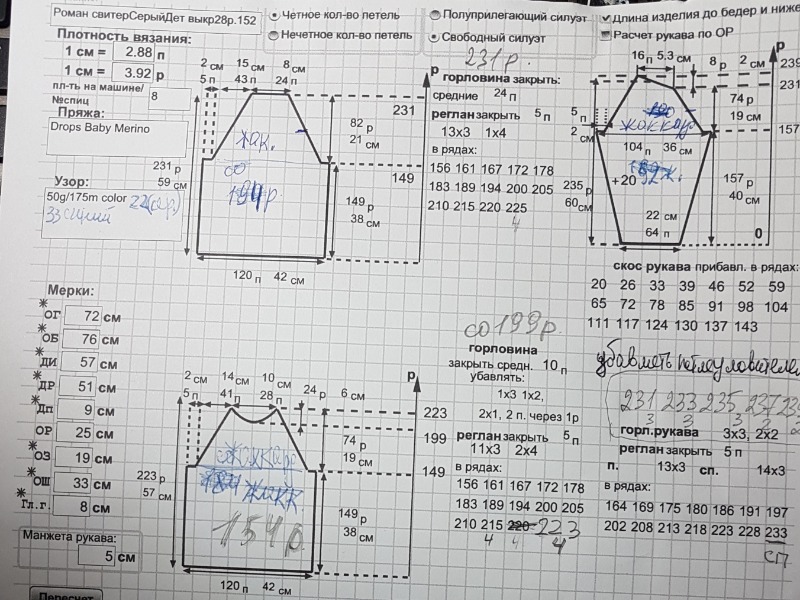 Роман свитерСерыйДет выкр28р.152
Четное кол-во петель
Нечетное кол-во петель
Полуприлегающий силуэт
Свободный силуэт
Длина изделия до бедер и ниже
Расчет рукава по ОР
Плотность вязания:
1 см = 2.88 п
1 см = 3.92 р
пл-ть на машине/
№спиц 8
Пряжа:
Drops Baby Merino
231 р
59 см
Узор:
50g/175m color 22(сер)
33 синий
2 см 15 см 8 см
5 п 43 п 24 п
р
231
82 р
21 см
149
149 р
38 см
жак.
со
194р.
120 п 42 см
231р.
горловина закрыть:
средние 24 п
реглан закрыть 5 п
13x3 1x4
в рядах:
156 161 167 172 178
183 189 194 200 205
210 215 220 225
4
235 р
60 см
16 п 5,3 см
8 р 2 см
р
239
231
74 р
19 см
157
5 п
2 см
жаккар
104 п 36 см
+20
157 р
40 см
22 см
64 п
0
скос рукава прибавл. в рядах:
20 26 33 39 46 52 59
65 72 78 85 91 98 104
111 117 124 130 137 143
убавлять петлеуловителем
231 233 235 237
3 3 3 3
горл.рукава 3x3, 2x2
реглан закрыть 5 п
п. 13x3 сп. 14x3
в рядах:
164 169 175 180 186 191 197
202 208 213 218 223 228 233
сп
Мерки:
ОГ 72 см
ОБ 76 см
ДИ 57 см
ДР 51 см
Дп 9 см
ОР 25 см
ОЗ 19 см
ОШ 33 см
Гл.г. 8 см
Манжета рукава:
5 см
Пересчет
223 р
57 см
2 см 14 см 10 см
5 п 41 п 28 п
24 р 6 см
р
223
74 р
19 см
199
149
149 р
38 см
жакк
154р
120 п 42 см
со 199р.
горловина
закрыть средн. 10 п
убавлять:
1x3 1x2,
2x1, 2 п. через 1р
реглан закрыть 5 п
11x3 2x4
в рядах:
156 161 167 172 178
183 189 194 200 205
210 215 220 223
4 4 4